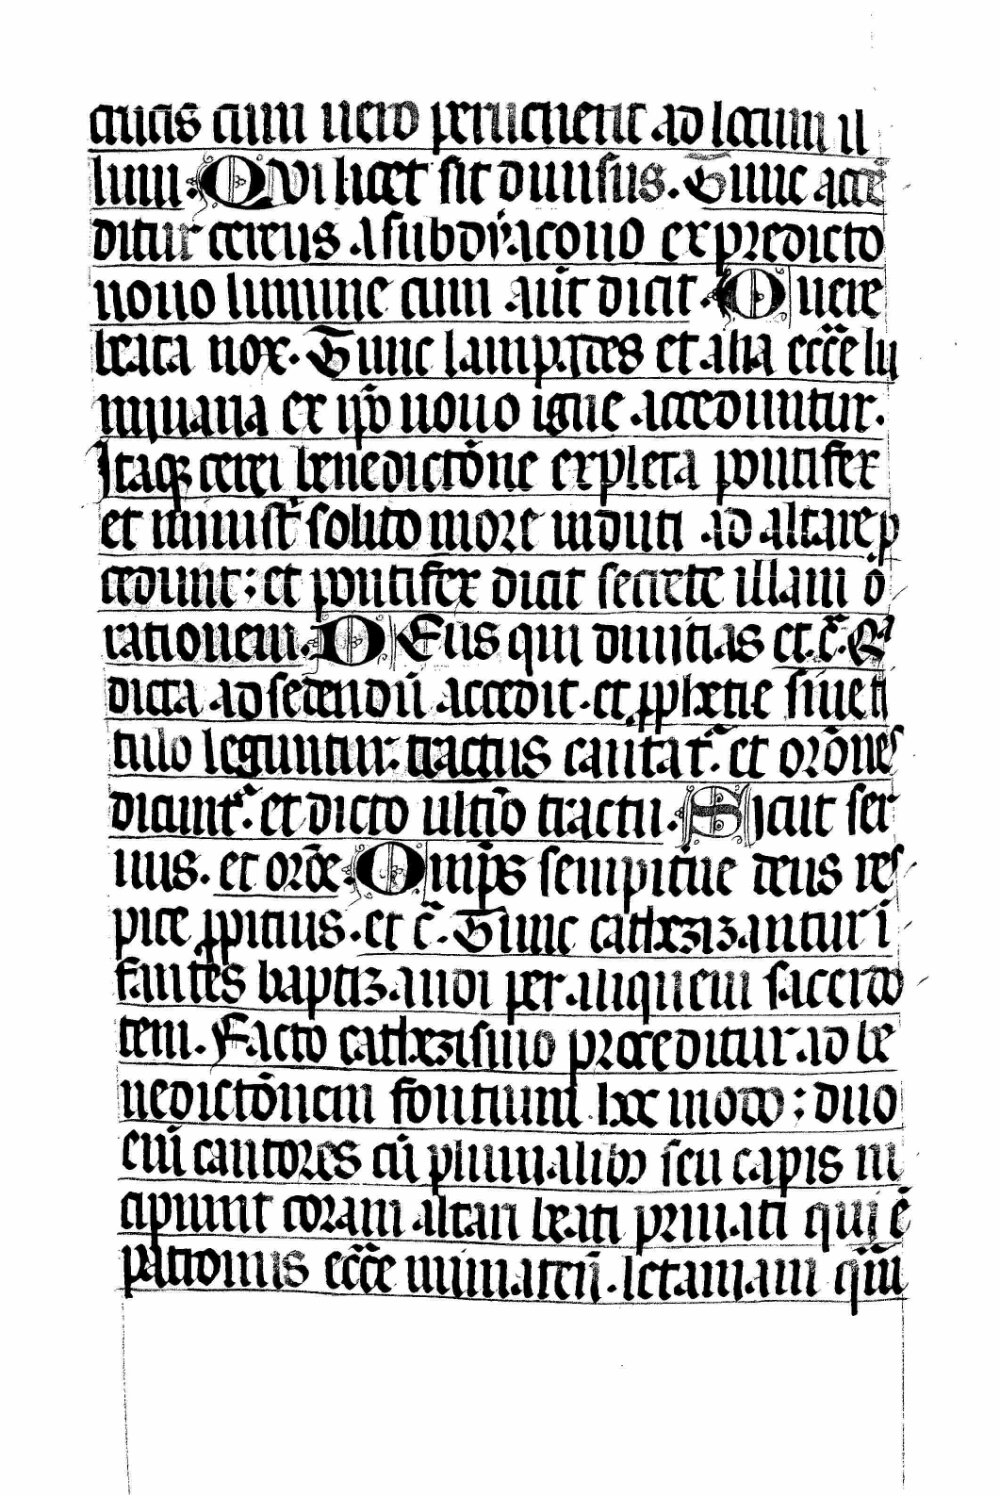 crucis cum uero peruenerit ad locum il
lum. Qui licet sit diuisus. Tunc accē
ditur cereus a subdyacono ex predicto
nouo lumine cum aūt dicit. O uere
beata nox. Tunc lampades et alia eccē lu
minaria ex ip̄o nouo igne acceduntur.
Itaq; cerei benedictōne expleta pontifex
et ministī solito more induti ad altare p
cedunt: et pontifex dicit secrete illam ō
rationem. DEus qui diuitias et. c̄. Qᵃ
dicta ad sedendū accedit. et ꝓphetie sine ti
tulo leguntur. tractus cantāt. et orōnes
dicunt̄. et dicto ultīo tractu. Sicut cer
uus. et orōe. Omīps sempitne deus res
pice ꝓpitius. et c̄. Tunc cathezizantur ī
fantes baptizandi per aliquem sacerdo
tem. Facto cathezismo proceditur ad be
nedictōnem fontium hoc modo: duo
enī cantores cū pluuialibꝫ seu capis in
cipiunt coram altari beati priuati qui ē
patronus eccē mimatēn. letaniam quā